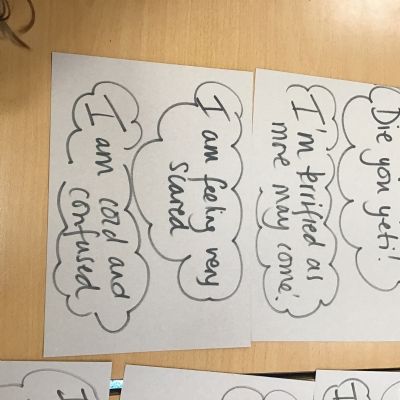 Die you yeti!
I'm terrified as
more may come!
I am feeling very
scared
I am cold and
confused